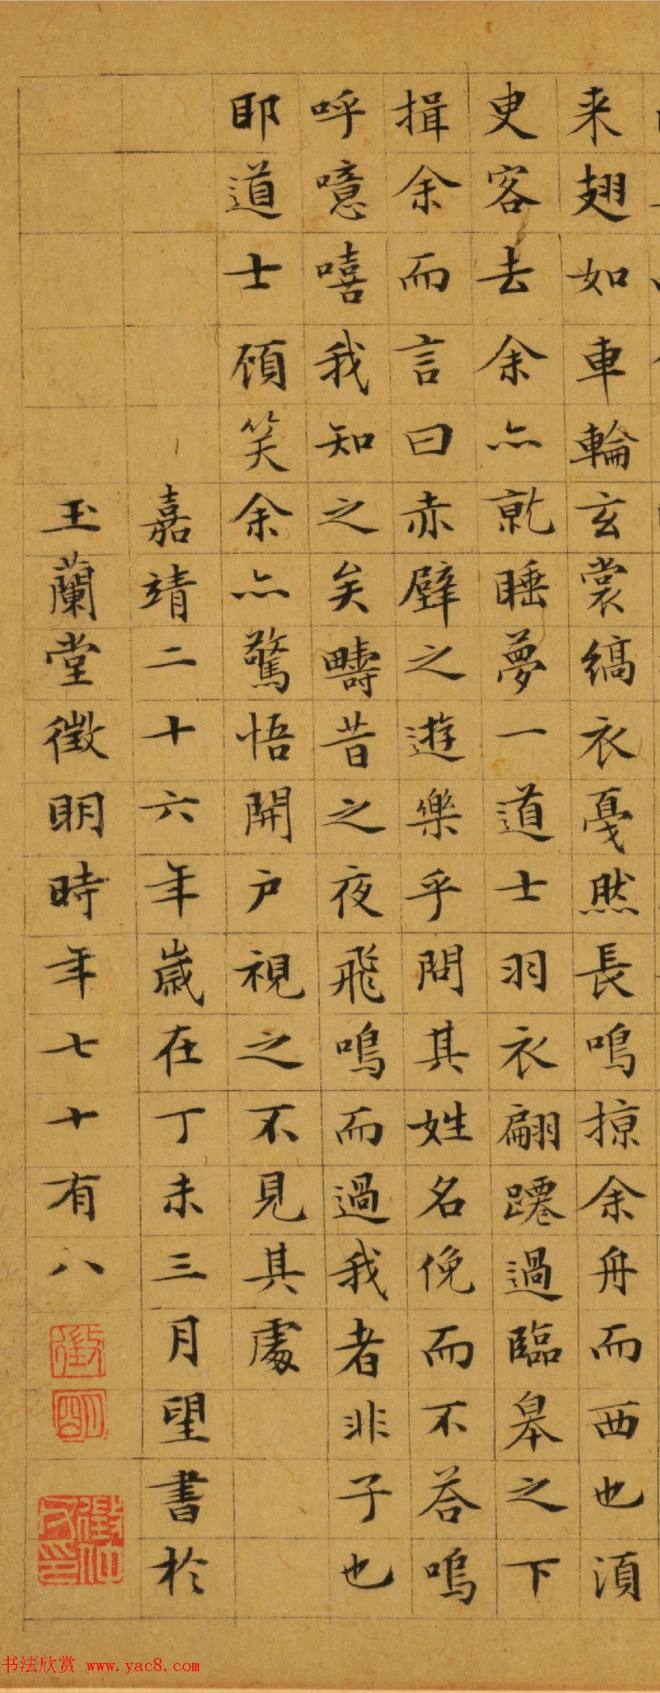 来翅如車輪玄裳縞衣戛然長鳴掠余舟而西也湏
史客去余亦就睡夢一道士羽衣翩躚過臨皋之下
揖余而言曰赤壁之遊樂乎問其姓名俛而不荅嗚
呼噫嘻我知之矣疇昔之夜飛鳴而過我者非子也
耶道士顧笑余亦驚悟開户視之不見其處
嘉靖二十六年歲在丁未三月望書於
玉蘭堂徵明時年七十有八
徵
明
徵仲
父印
书法欣赏 www.yac8.com